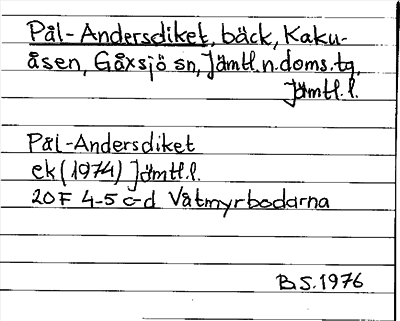 Pål-Andersdiket, bäck, Kaku-
åsen, Gåxsjö sn, Jämtl.n.doms.tg,
Jämtl.l.
Pål-Andersdiket
ek (1974) Jämtl.l.
20F 4-5 c-d Våtmyrbodarna
B S. 1976